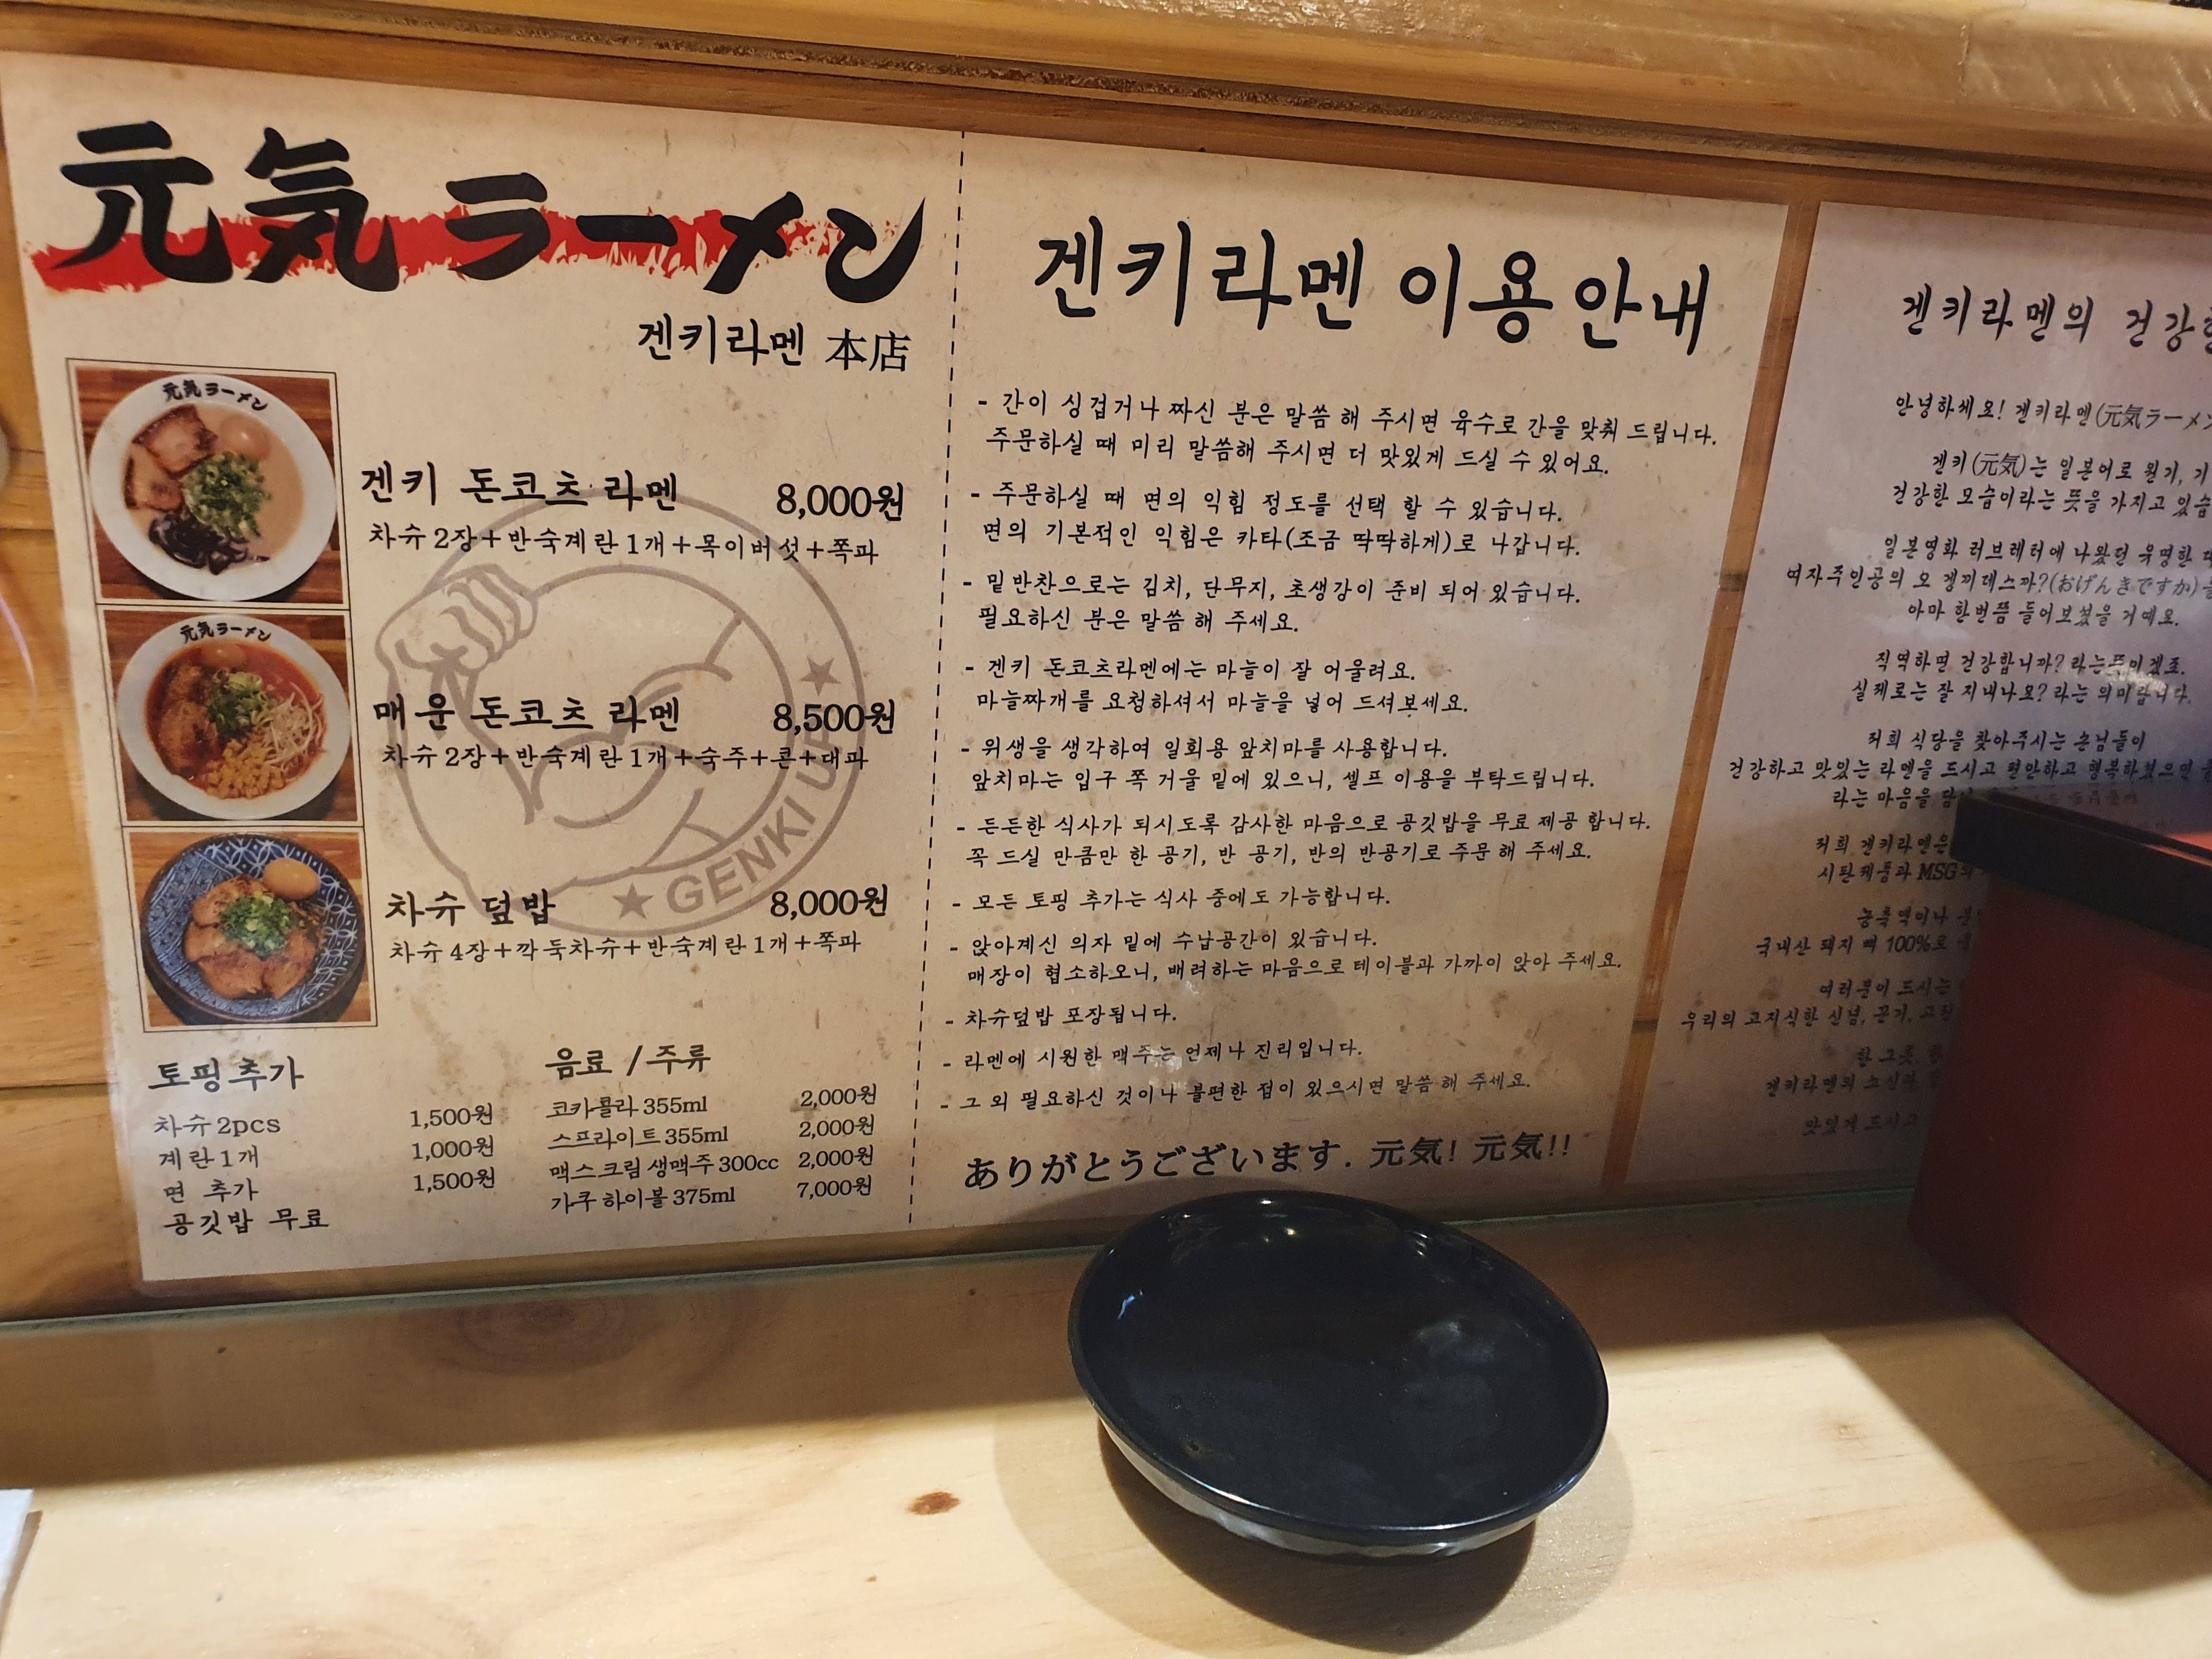 元気ラーメン
겐키라멘 本店
元気ラーメン
겐키 돈코츠 라멘 8,000원
차슈 2장+반숙계란 1개+목이버섯+쪽파
元気ラーメン
매운 돈코츠 라멘 8,500원
차슈 2장+반숙계란 1개+숙주+콘+대파
차슈 덮밥 8,000원
차슈 4장+깍둑차슈+반숙계란 1개+쪽파
GENKI UP
토핑추가
차슈 2pcs 1,500원
계란 1개 1,000원
면 추가 1,500원
공깃밥 무료
음료 / 주류
코카콜라 355ml 2,000원
스프라이트 355ml 2,000원
맥스크림 생맥주 300cc 2,000원
가쿠 하이볼 375ml 7,000원
겐키라멘 이용 안내
- 간이 싱겁거나 짜신 분은 말씀 해 주시면 육수로 간을 맞춰 드립니다.
주문하실 때 미리 말씀해 주시면 더 맛있게 드실 수 있어요.
- 주문하실 때 면의 익힘 정도를 선택 할 수 있습니다.
면의 기본적인 익힘은 카타(조금 딱딱하게)로 나갑니다.
- 밑반찬으로는 김치, 단무지, 초생강이 준비 되어 있습니다.
필요하신 분은 말씀 해 주세요.
- 겐키 돈코츠라멘에는 마늘이 잘 어울려요.
마늘짜개를 요청하셔서 마늘을 넣어 드셔보세요.
- 위생을 생각하여 일회용 앞치마를 사용합니다.
앞치마는 입구 쪽 거울 밑에 있으니, 셀프 이용을 부탁드립니다.
- 든든한 식사가 되시도록 감사한 마음으로 공깃밥을 무료 제공 합니다.
꼭 드실 만큼만 한 공기, 반 공기, 반의 반공기로 주문 해 주세요.
- 모든 토핑 추가는 식사 중에도 가능합니다.
- 앉아계신 의자 밑에 수납공간이 있습니다.
매장이 협소하오니, 배려하는 마음으로 테이블과 가까이 앉아 주세요.
- 차슈덮밥 포장됩니다.
- 라멘에 시원한 맥주는 언제나 진리입니다.
- 그 외 필요하신 것이나 불편한 점이 있으시면 말씀 해 주세요.
ありがとうございます. 元気! 元気!!
겐키라멘의 건강한
안녕하세요! 겐키라멘(元気ラーメ
겐키(元気)는 일본어로 원기, 기
건강한 모습이라는 뜻을 가지고 있습
일본영화 러브레터에 나왔던 유명한
여자주인공의 오 겡끼데스까?(おげんきですか)를
아마 한번쯤 들어보셨을 거예요.
직역하면 건강합니까? 라는 뜻이겠죠.
실제로는 잘 지내나요? 라는 의미랍니다.
저희 식당을 찾아주시는 손님들이
건강하고 맛있는 라멘을 드시고 편안하고 행복하셨으면
라는 마음을
저희 겐키라멘은
시판제품과 MSG
농축액이나
국내산 돼지 뼈 100%로
여러분이 드시는
우리의 고지식한 신념, 끈기,
한 그릇,
겐키라멘의
맛있게 드시고